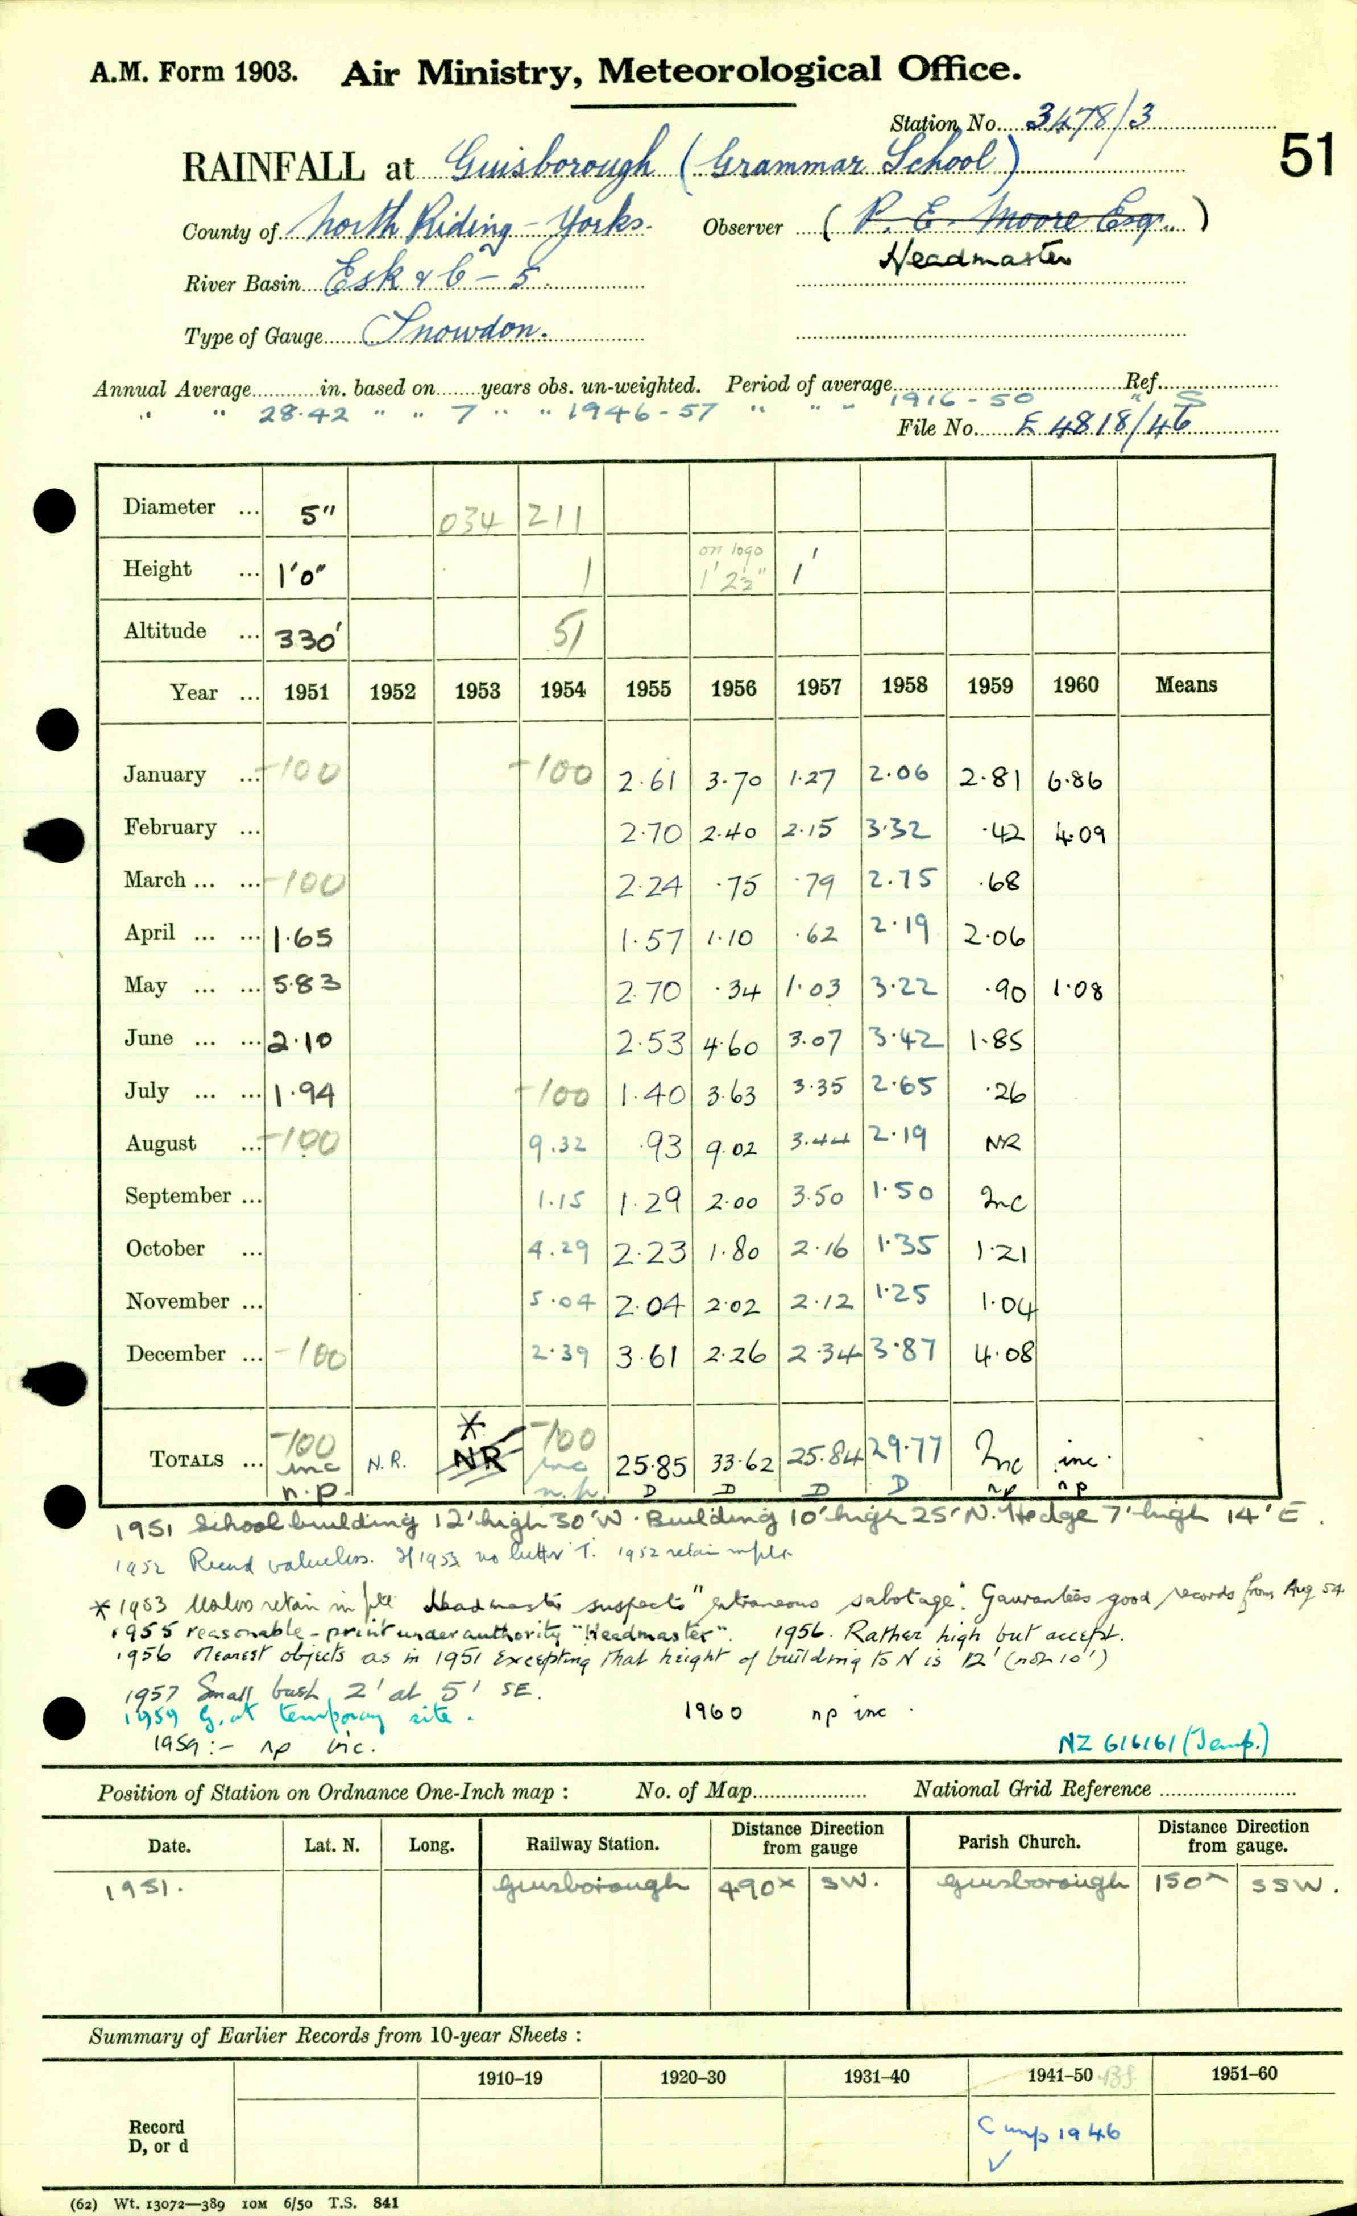 A.M. Form 1903. Air Ministry, Meteorological Office.
Station No. 3478/3
51
RAINFALL at Guisborough (Grammar School)
County of North Riding - Yorks. Observer (P. E. Moore Esq.)
Headmaster
River Basin Esk & C - 5
Type of Gauge Snowdon.
Annual Average in. based on years obs. un-weighted. Period of average Ref.
" " 28.42 " " 7 " " 1946-57 " " " 1916-50 " S
File No. E 4818/46
Diameter ... 5" 034 211
Height ... 1'0" 1 on logo 1'2½" 1'
Altitude ... 330' 51
Year ... 1951 1952 1953 1954 1955 1956 1957 1958 1959 1960 Means
January ... -100 -100 2.61 3.70 1.27 2.06 2.81 6.86
February ... 2.70 2.40 2.15 3.32 .42 4.09
March ... ... -100 2.24 .75 .79 2.75 .68
April ... ... 1.65 1.57 1.10 .62 2.19 2.06
May ... ... 5.83 2.70 .34 1.03 3.22 .90 1.08
June ... ... 2.10 2.53 4.60 3.07 3.42 1.85
July ... ... 1.94 -100 1.40 3.63 3.35 2.65 .26
August ... -100 9.32 .93 9.02 3.44 2.19 NR
September ... 1.15 1.29 2.00 3.50 1.50 Inc
October ... 4.29 2.23 1.80 2.16 1.35 1.21
November ... 5.04 2.04 2.02 2.12 1.25 1.04
December ... -100 2.39 3.61 2.26 2.34 3.87 4.08
* -100
TOTALS ... -100 inc N.R. NR inc 25.85 33.62 25.84 29.77 Inc inc.
n.p. n.p. D D D D np np
1951 School building 12' high 30' W. Building 10' high 25' N. Hedge 7' high 14' E.
1952 Record valueless. If 1953 no better T. 1952 retain in file
* 1953 Useless retain in file Headmaster suspects "extraneous sabotage". Gaurantees good records from Aug 54
1955 reasonable - print under authority "Headmaster". 1956. Rather high but accept.
1956 Nearest objects as in 1951 excepting that height of building to N is 12' (not 10')
1957 Small bush 2' at 5' SE.
1959 G. at temporary site.
1960 np inc.
1959:- np inc.
NZ 616161 (Temp.)
Position of Station on Ordnance One-Inch map : No. of Map National Grid Reference
Date. Lat. N. Long. Railway Station. Distance from gauge Direction Parish Church. Distance from gauge. Direction
1951. Guisborough 490x SW. Guisborough 150x SSW.
Summary of Earlier Records from 10-year Sheets :
1910–19 1920–30 1931–40 1941–50 1951–60
Record
D, or d
Comp 1946
✓
(62) Wt. 13072—389 10M 6/50 T.S. 841